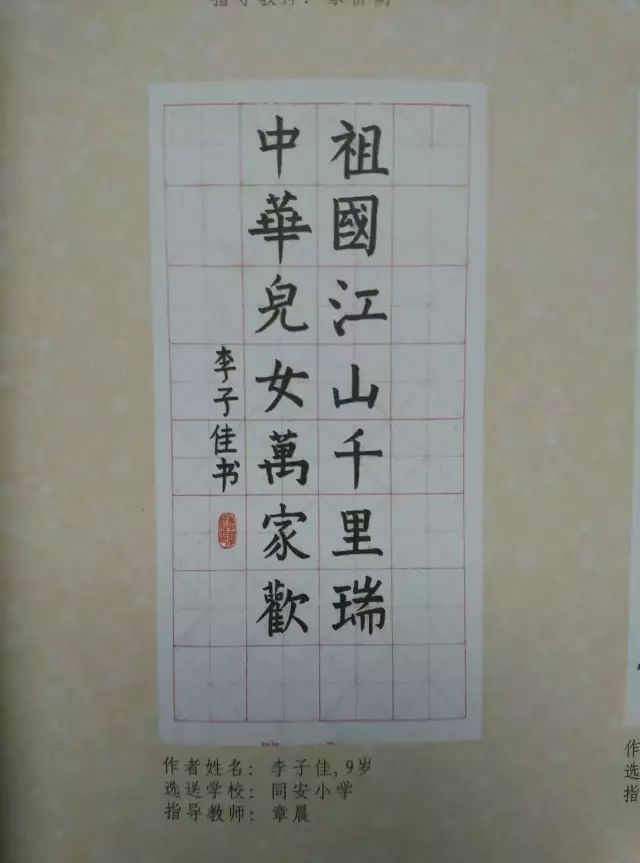 祖國江山千里瑞
中華兒女萬家歡
李子佳书
作者姓名：李子佳，9岁
选送学校：同安小学
指导教师：章晨